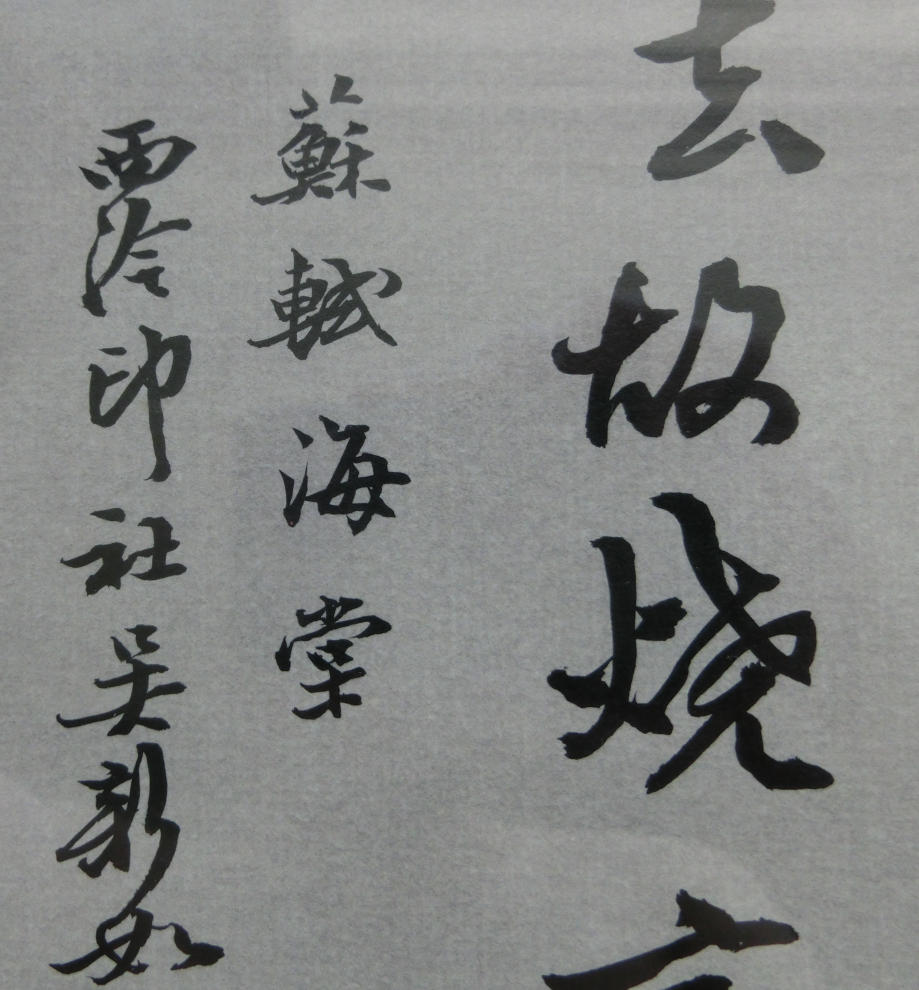 去故烧
蘇軾海棠
西泠印社吴新如